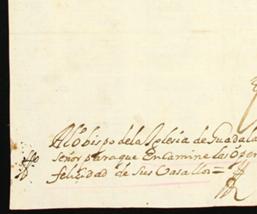 Al obispo de la Iglesia de Guadala
Señor para que Encamine las
felicidad de sus Vasallos =